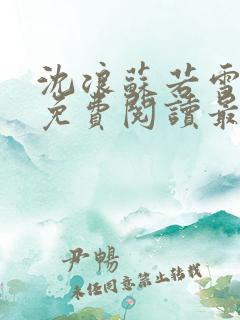 沈浪蘇若雪
免費閱讀最
尹暢
未经同意禁止转载